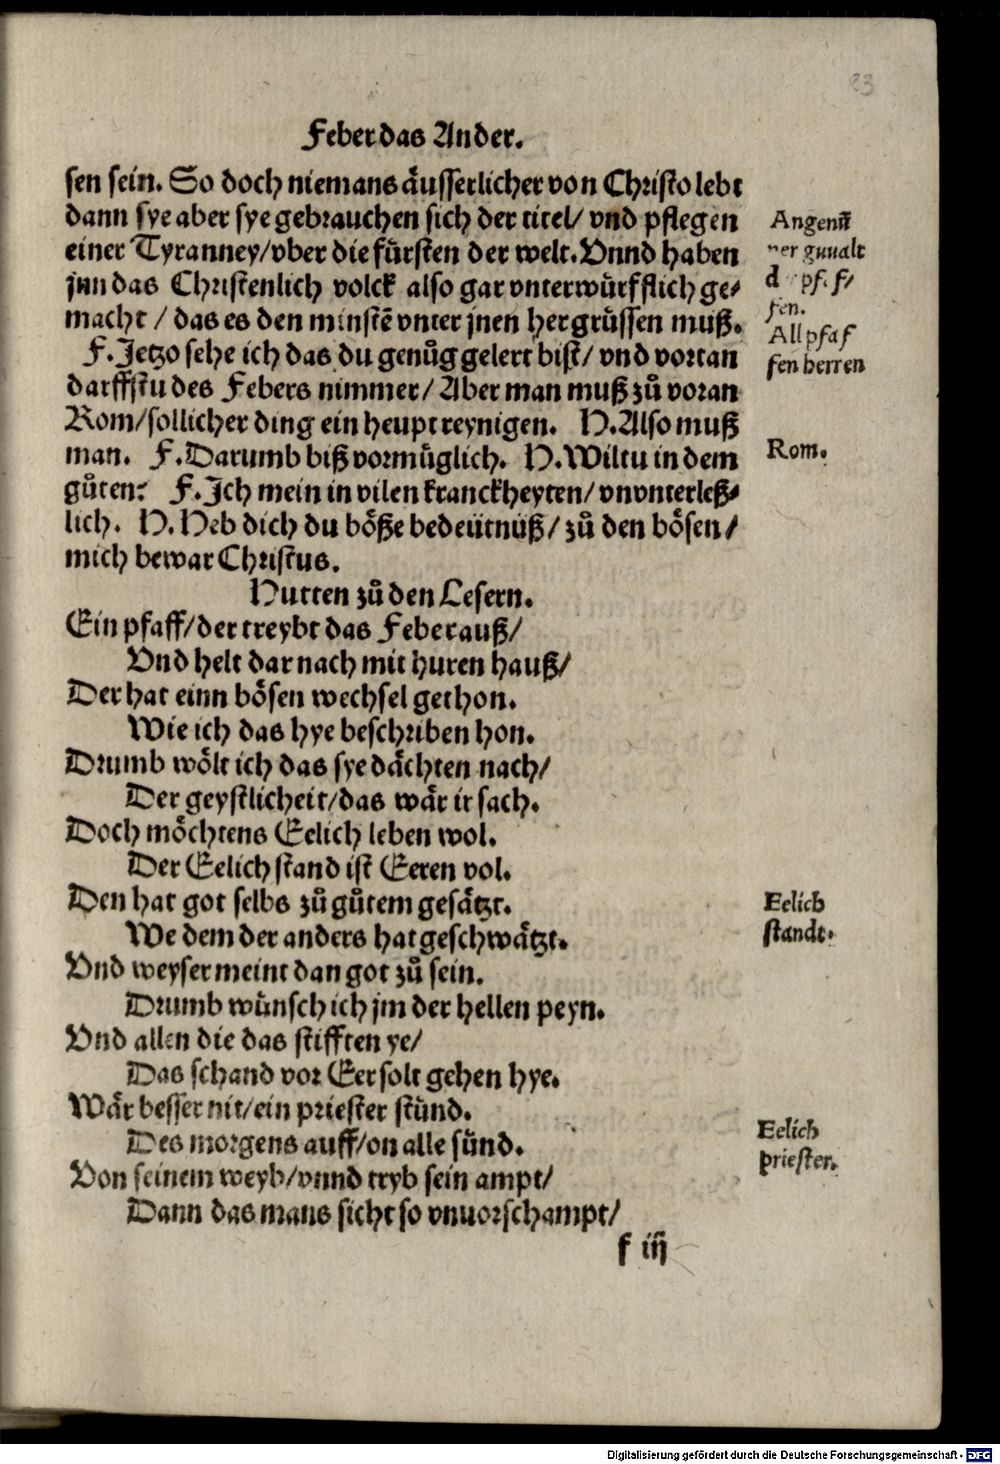 23
Feber das Ander.
sen sein. So doch niemans äusserlicher von Christo lebt
dann sye aber sye gebrauchen sich der titel/ vnd pflegen
einer Tyranney/vber die fürsten der welt. Vnnd haben
jnn das Christenlich volck also gar vnterwürfflich ge⸗
macht / das es den minstẽ vnter jnen her grüssen muß.
F. Jetzo sehe ich das du genůg gelert bist/ vnd vortan
darffstu des Febers nimmer/ Aber man muß zů voran
Rom/sollicher ding ein heupt reynigen. H. Also muß
man. F. Darumb biß vormüglich. H. Wiltu in dem
gůten? F. Jch mein in vilen kranckheyten/ vnvnterleß⸗
lich. H. Heb dich du böße bedeütnüß/ zů den bösen/
mich bewar Christus.
Hutten zů den Lesern.
Ein pfaff/der treybt das Feber auß/
Vnd helt dar nach mit huren hauß/
Der hat einn bösen wechsel gethon.
Wie ich das hye beschriben hon.
Drumb wölt ich das sye dächten nach/
Der geystlicheit/das wär ir sach.
Doch möchtens Eelich leben wol.
Der Eelich stand ist Eeren vol.
Den hat got selbs zů gůtem gesätzt.
We dem der anders hat geschwätzt.
Vnd weyser meint dan got zů sein.
Drumb wünsch ich jm der hellen peyn.
Vnd allen die das stifften ye/
Das schand vor Eer solt gehen hye.
Wär besser nit/ein priester stünd.
Des morgens auff/on alle sünd.
Von seinem weyb/vnnd tryb sein ampt/
Dann das mans sicht so vnuorschampt/
f iij
Rom.
All pfaf
fen herren
Eelich
standt.
Eelich
priester.
Digitalisierung gefördert durch die Deutsche Forschungsgemeinschaft - DFG